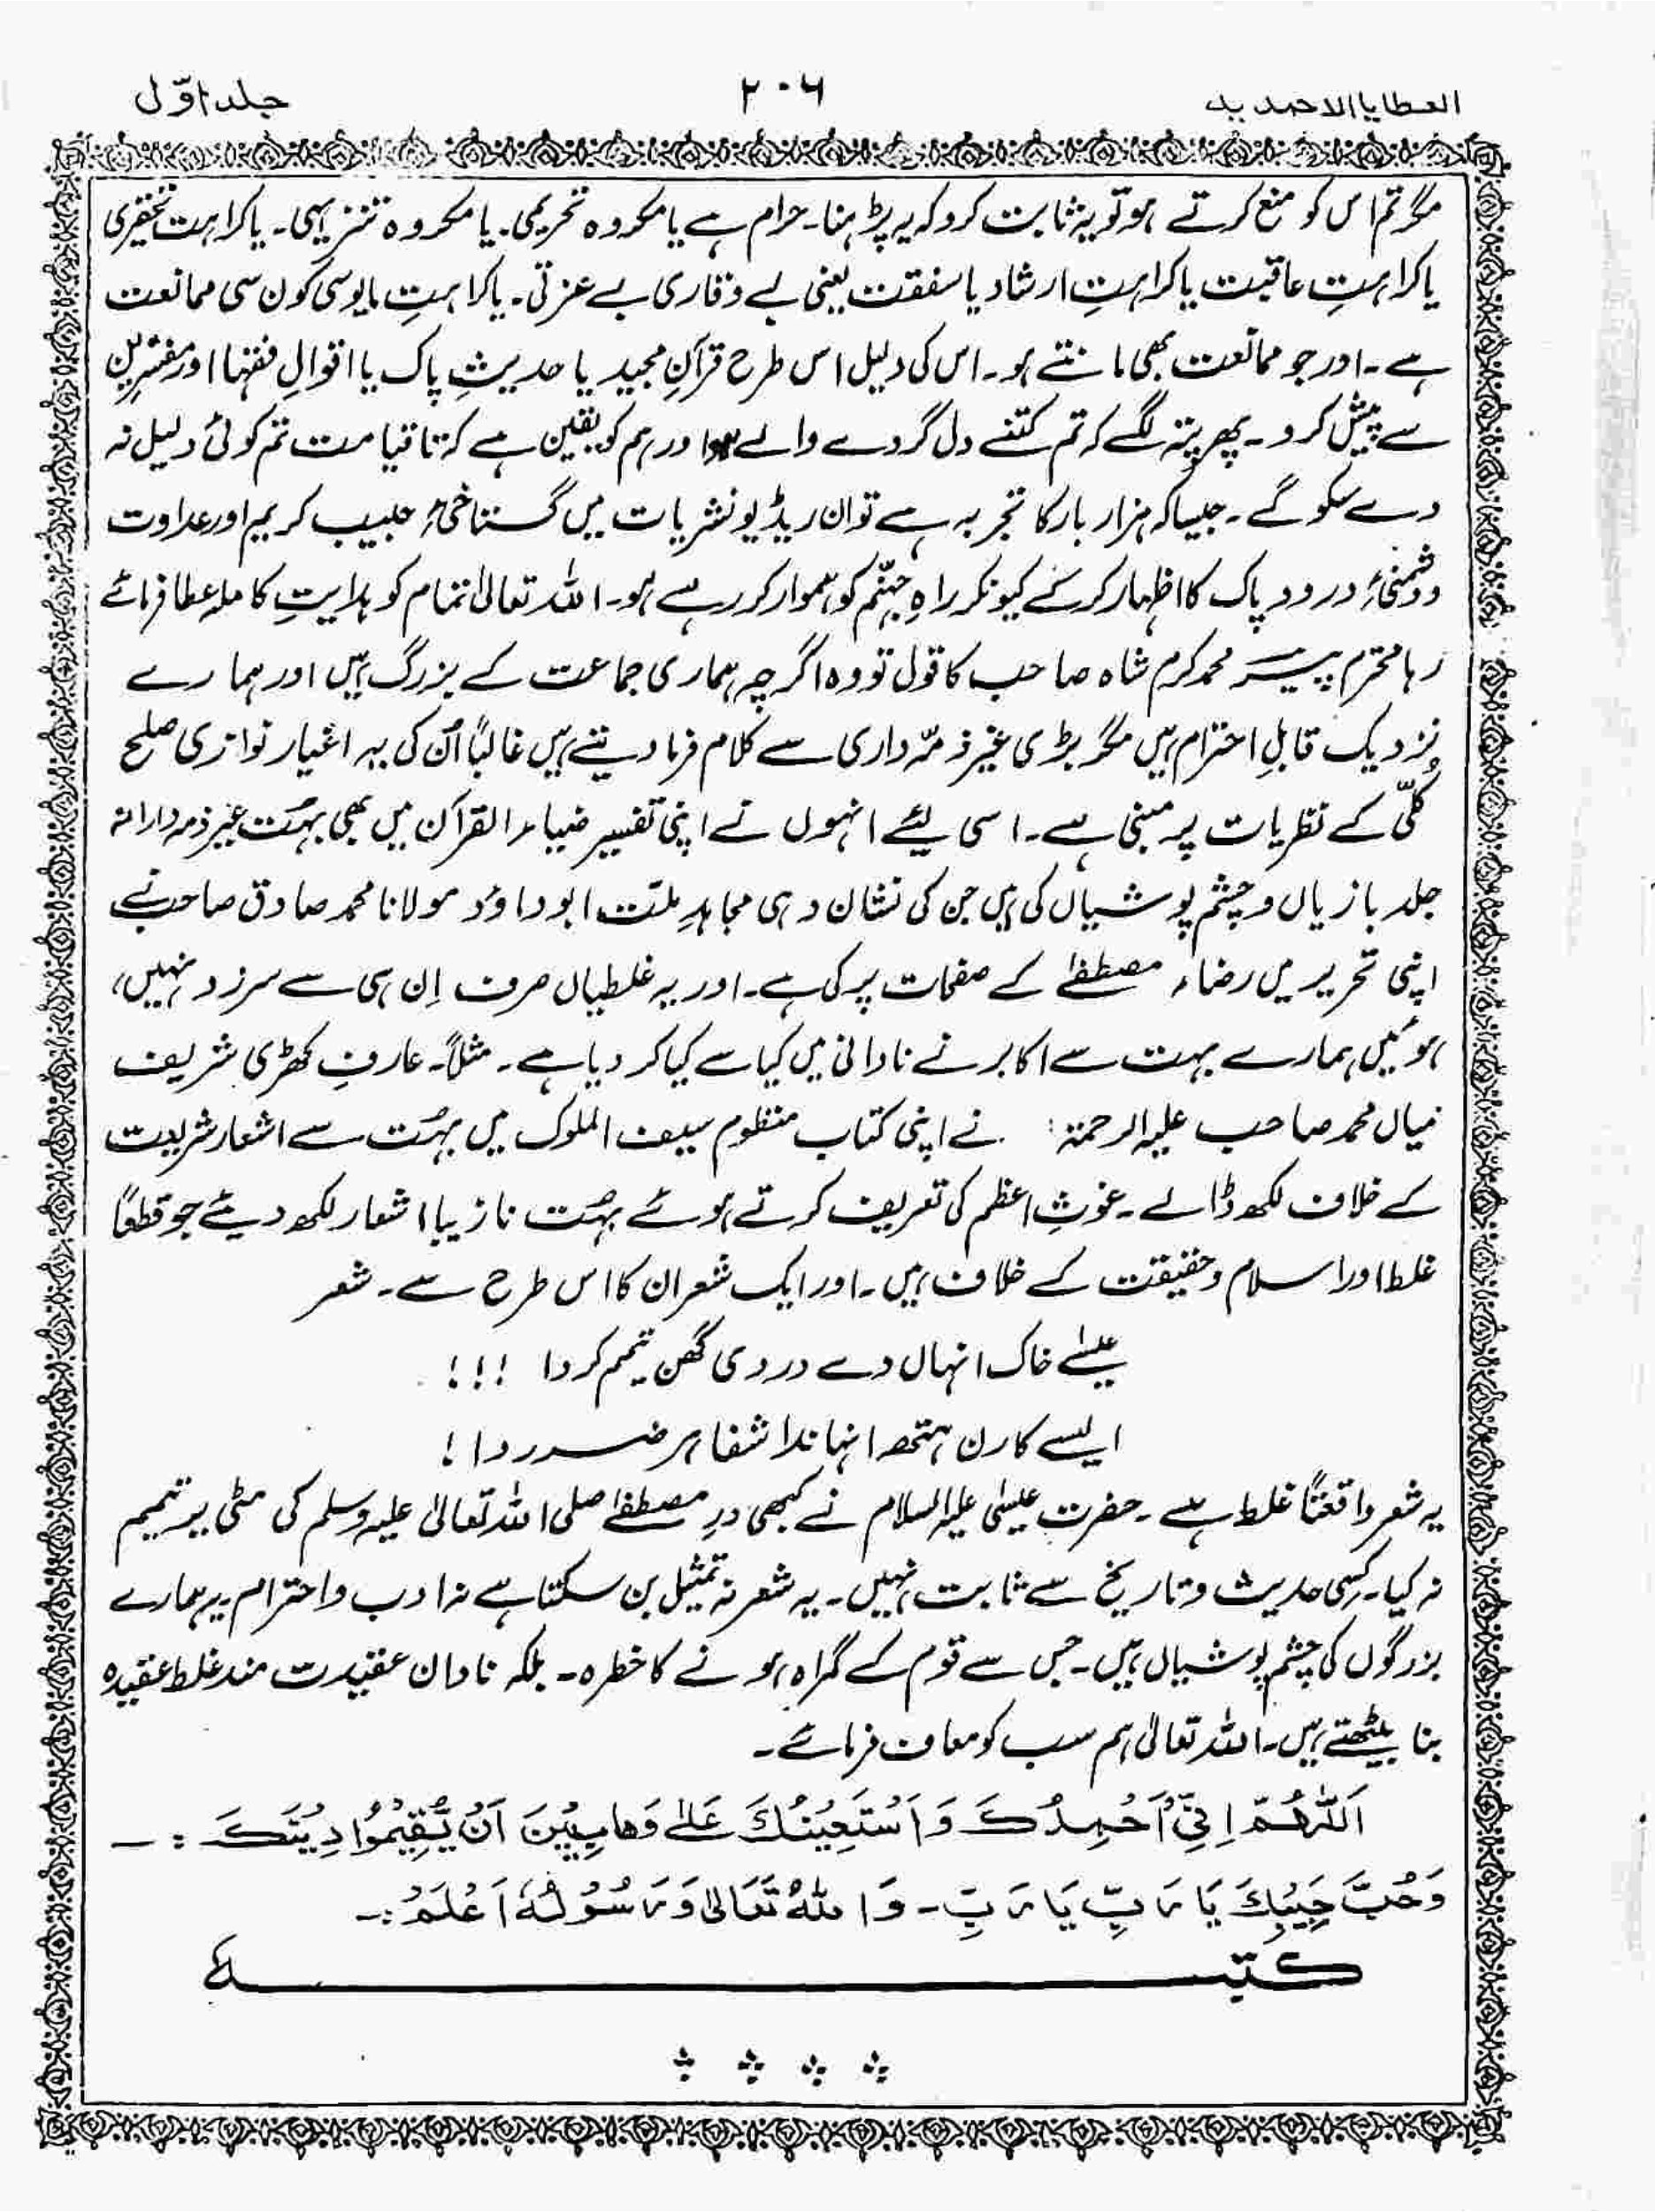 العطایا الاحمدیہ
۲۰۶
جلد اوّل
مگر تم اس کو منع کرتے ہو تو یہ ثابت کرو کہ یہ پڑہنا۔ حرام ہے یا مکروہ تحریمی۔ یا مکروہ تنزیہی۔ یا کراہت تحقیری
یا کراہتِ عاقبت یا کراہتِ ارشاد یا سفقت یعنی بے وقاری بے عزتی۔ یا کراہتِ مایوسی کون سی ممانعت
ہے۔ اور جو ممانعت بھی مانتے ہو۔ اس کی دلیل اس طرح قرآنِ مجید یا حدیثِ پاک یا اقوالِ فقہا اور مفسّرین
سے پیش کرو۔ پھر پتہ لگے کہ تم کتنے دل گردے والے ہو اور ہم کو یقین ہے کہ تا قیامت تم کوئی دلیل نہ
دے سکو گے۔ جیسا کہ ہزار بار کا تجربہ ہے تو ان ریڈیو نشریات میں گستاخیٔ حبیب کریم اور عداوت
و دشمنیٔ درود پاک کا اظہار کر کے کیونکر راہِ جہنّم کو ہموار کر رہے ہو۔ اللہ تعالیٰ تمام کو ہدایتِ کاملہ عطا فرمائے
رہا محترم پیر محمد کرم شاہ صاحب کا قول تو وہ اگرچہ ہماری جماعت کے بزرگ ہیں اور ہمارے
نزدیک قابلِ احترام ہیں مگر بڑی غیر ذمّہ داری سے کلام فرما دیتے ہیں غالباً اُن کی یہ اغیار نوازی صلح
کُلّی کے نظریات پر مبنی ہے۔ اسی لیئے انہوں نے اپنی تفسیر ضیاء القرآن میں بھی بہت غیر ذمہ دارانہ
جلد بازیاں و چشم پوشیاں کی ہیں جن کی نشان دہی مجاہدِ ملّت ابوداؤد مولانا محمد صادق صاحب نے
اپنی تحریر میں رضاء مصطفٰے کے صفحات پر کی ہے۔ اور یہ غلطیاں صرف اِن ہی سے سرزد نہیں،
ہوئیں ہمارے بہت سے اکابر نے نادانی میں کیا سے کیا کر دیا ہے۔ مثلاً۔ عارفِ کھڑی شریف
میاں محمد صاحب علیہ الرحمۃ نے اپنی کتاب منظوم سیف الملوک میں بہُت سے اشعار شریعت
کے خلاف لکھ ڈالے۔ غوثِ اعظم کی تعریف کرتے ہوئے بہُت نازیبا اشعار لکھ دیئے جو قطعاً
غلط اور اسلام و حقیقت کے خلاف ہیں۔ اور ایک شعر ان کا اس طرح سے۔ شعر
عیسٰے خاک انہاں دے در دی گھن تیمم کردا !!!
ایسے کارن ہتھ انہاندا شفا ہر ضرر دا !
یہ شعر واقعتًا غلط ہے۔ حضرت عیسٰی علیہ السلام نے کبھی درِ مصطفٰے صلی اللہ تعالیٰ علیہ وسلم کی مٹی پر تیمم
نہ کیا۔ کسی حدیث و تاریخ سے ثابت نہیں۔ یہ شعر نہ تمثیل بن سکتا ہے نہ ادب و احترام۔ یہ ہمارے
بزرگوں کی چشم پوشیاں ہیں۔ جس سے قوم کے گمراہ ہونے کا خطرہ۔ بلکہ نادان عقیدت مند غلط عقیدہ
بنا بیٹھتے ہیں۔ اللہ تعالیٰ ہم سب کو معاف فرمائے۔
اَللّٰھُمَّ اِنِّیْ اَحْمِدُكَ وَ اَسْتَعِیْنُكَ عَلٰے وَھَابِیِیْنَ اَنْ یُّقِیْمُوْا دِیْنَكَ :۔
وَحُبَّ حَبِیْبِكَ یَا رَبِّ یَا رَبِّ۔ وَاللّٰہُ تَعَالٰی وَرَسُوْلُہٗ اَعْلَمُ :۔
کتبہ